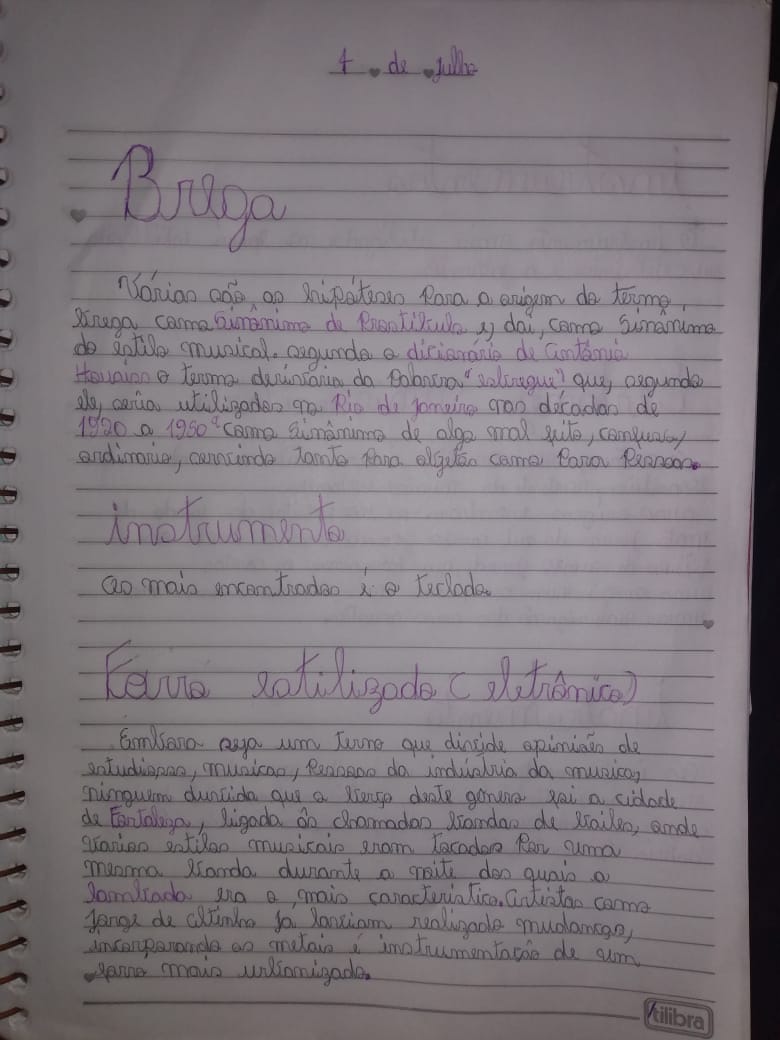 4 de Julho
Brega
Várias são, as hipóteses Para a origem do termo
brega como Sinônimo de Prostíbulo e, daí, como Sinônimo
do estilo musical. segundo o dicionário de Antônio
Houaiss o termo derivaria da Palavra "esbregue" que, segundo
ele, seria utilizados no Rio de Janeiro nas décadas de
1920 a 1950 "como Sinônimo de algo mal feito, confuso,
ordinario, servindo tanto Para objetos como Para Pessoas.
instrumento
os mais encontrados é o teclado.
Forró estilizado (eletrônico)
Embora seja um termo que divide opiniões de
estudiosos, musicos, Pessoas da indústria da musica,
ninguem duvida que o berço deste gênero foi a cidade
de Fortaleza, ligada às chamadas bandas de bailes, onde
varios estilos musicais eram tocados Por uma
mesma banda durante a noite dos quais a
lambada era o mais característico. Artistas como
Jorge de altinho ja haviam realizado mudanças,
incorporando os metais é instrumentação de um
forró mais urbanizado.
tilibra